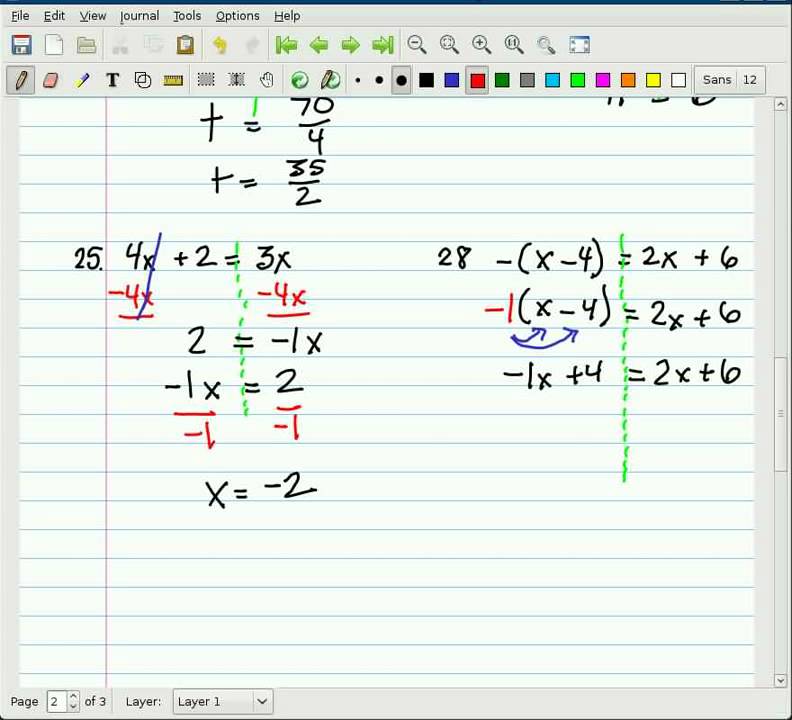 File Edit View Journal Tools Options Help
Sans 12
t = 70/4
t = 35/2
25. 4x + 2 = 3x
-4x -4x
2 = -1x
-1x = 2
-1 -1
x = -2
28 -(x-4) = 2x + 6
-1(x-4) = 2x+6
-1x +4 = 2x+6
Page 2 of 3 Layer: Layer 1